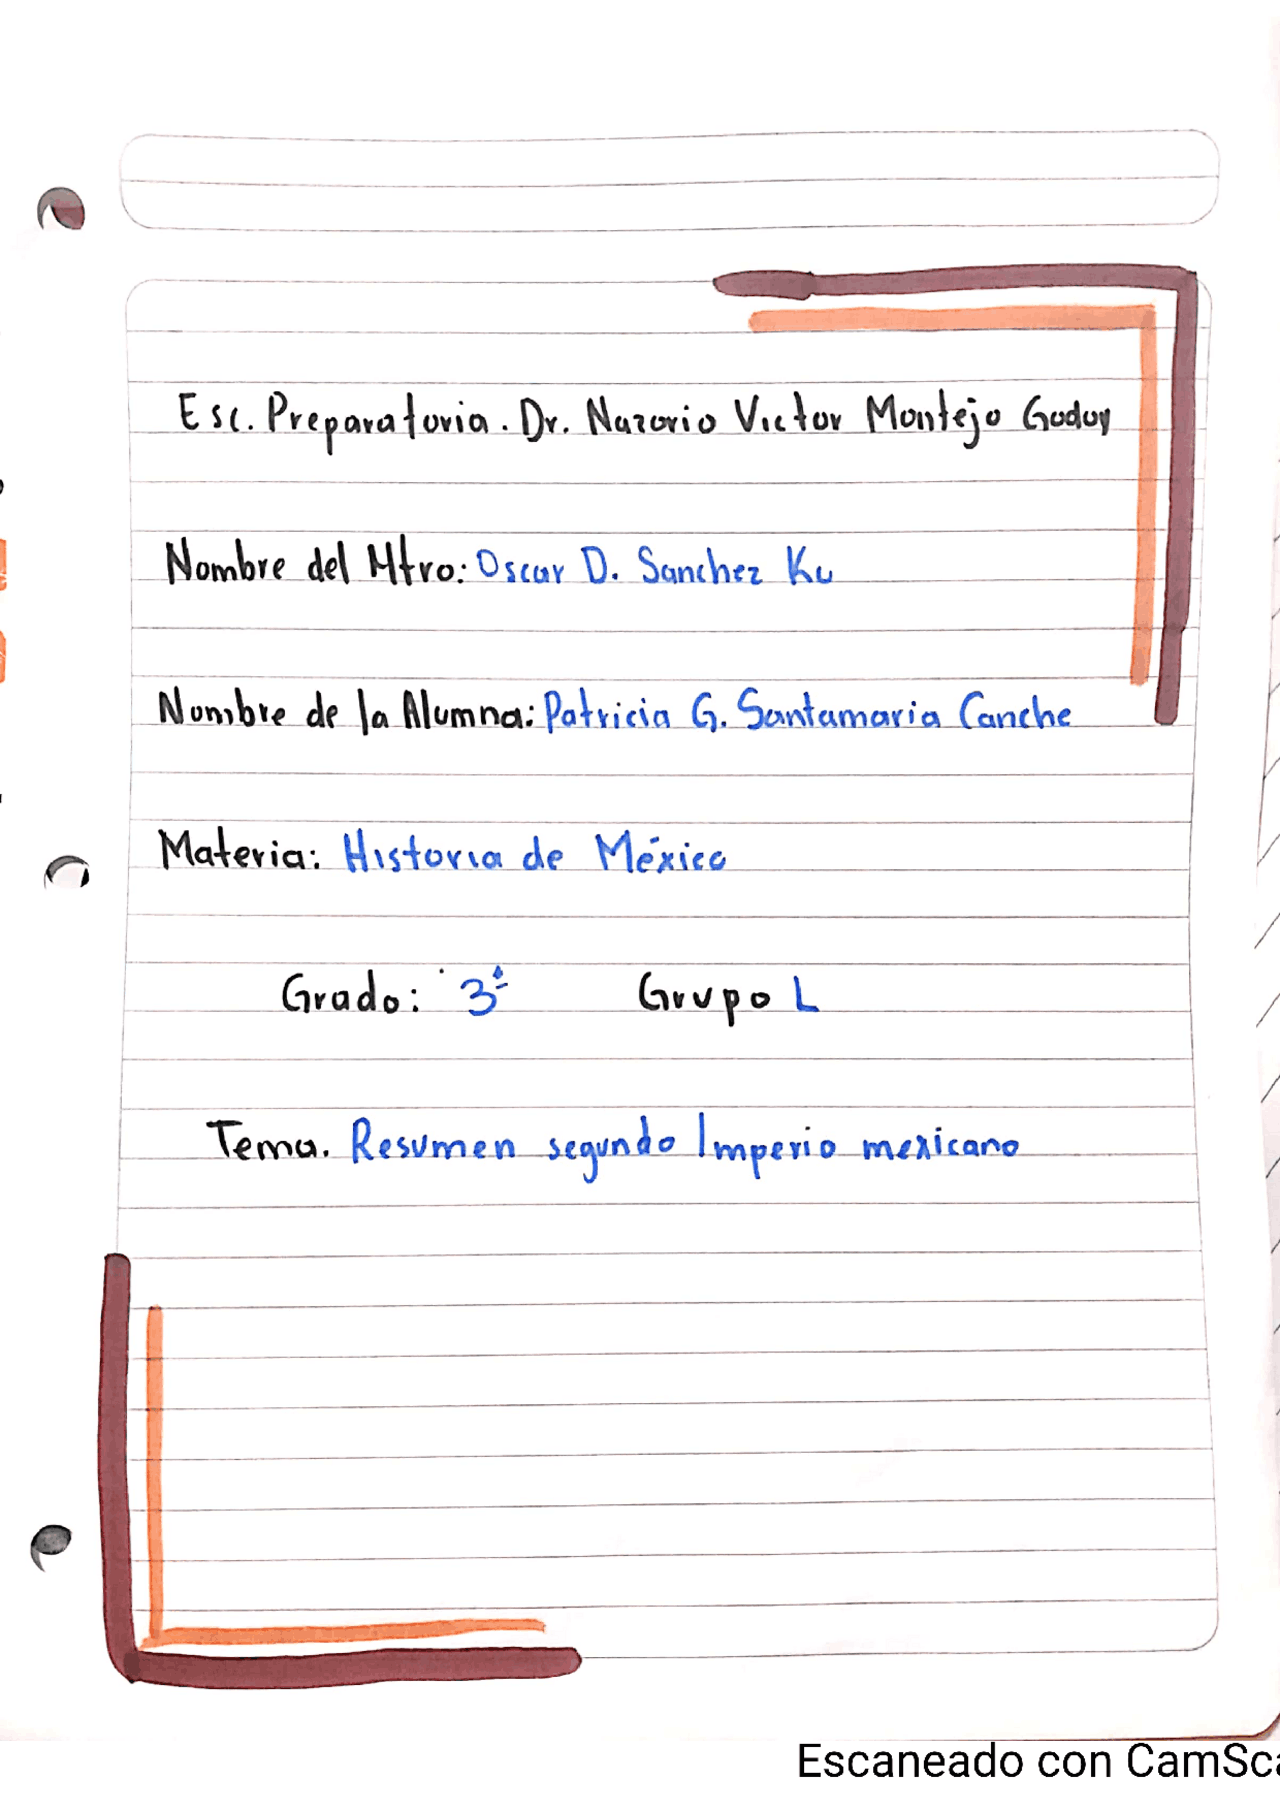 Esc. Preparatoria. Dr. Nazario Victor Montejo Godoy
Nombre del Mtro: Oscar D. Sanchez Ku
Nombre de la Alumna: Patricia G. Santamaria Canche
Materia: Historia de México
Grado: 3° Grupo L
Tema. Resumen segundo Imperio mexicano
Escaneado con CamSca